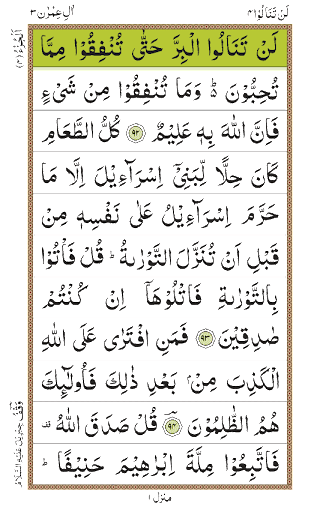 لَنْ تَنَالُوْا ۴ اٰلِ عِمْرٰن ۳
اَلْجُزْءُ (۴)
لَنْ تَنَالُوا الْبِرَّ حَتّٰى تُنْفِقُوْا مِمَّا
تُحِبُّوْنَ ؕ وَمَا تُنْفِقُوْا مِنْ شَیْءٍ
فَاِنَّ اللّٰهَ بِهٖ عَلِیْمٌ ﴿۹۲﴾ كُلُّ الطَّعَامِ
كَانَ حِلًّا لِّبَنِیْۤ اِسْرَآءِیْلَ اِلَّا مَا
حَرَّمَ اِسْرَآءِیْلُ عَلٰى نَفْسِهٖ مِنْ
قَبْلِ اَنْ تُنَزَّلَ التَّوْرٰىةُ ؕ قُلْ فَاْتُوْا
بِالتَّوْرٰىةِ فَاتْلُوْهَاۤ اِنْ كُنْتُمْ
صٰدِقِیْنَ ﴿۹۳﴾ فَمَنِ افْتَرٰى عَلَى اللّٰهِ
الْكَذِبَ مِنْۢ بَعْدِ ذٰلِكَ فَاُولٰٓىِٕكَ
هُمُ الظّٰلِمُوْنَ ﴿۹۴﴾ قُلْ صَدَقَ اللّٰهُ قف
فَاتَّبِعُوْا مِلَّةَ اِبْرٰهِیْمَ حَنِیْفًا ؕ
وَقْفُ جِبْرِیْلَ عَلَیْهِ السَّلَام
منزل ۱